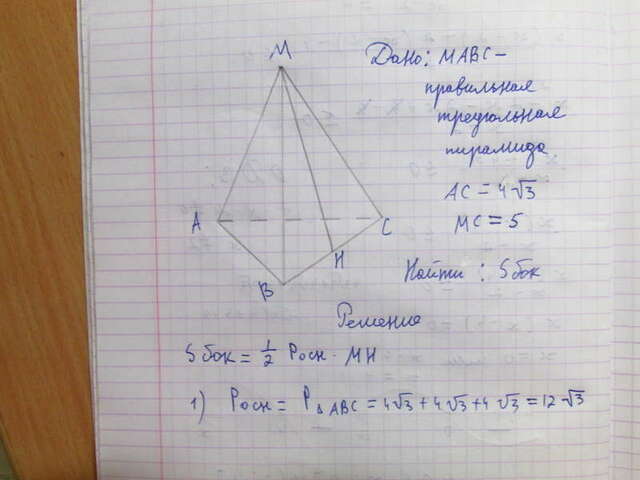 M
A
C
H
B
Дано: MABC -
правильная
треугольная
пирамида
AC = 4√3
MC = 5
Найти: Sбок
Решение
Sбок = 1/2 Pосн · MH
1) Pосн = P△ABC = 4√3 + 4√3 + 4√3 = 12√3